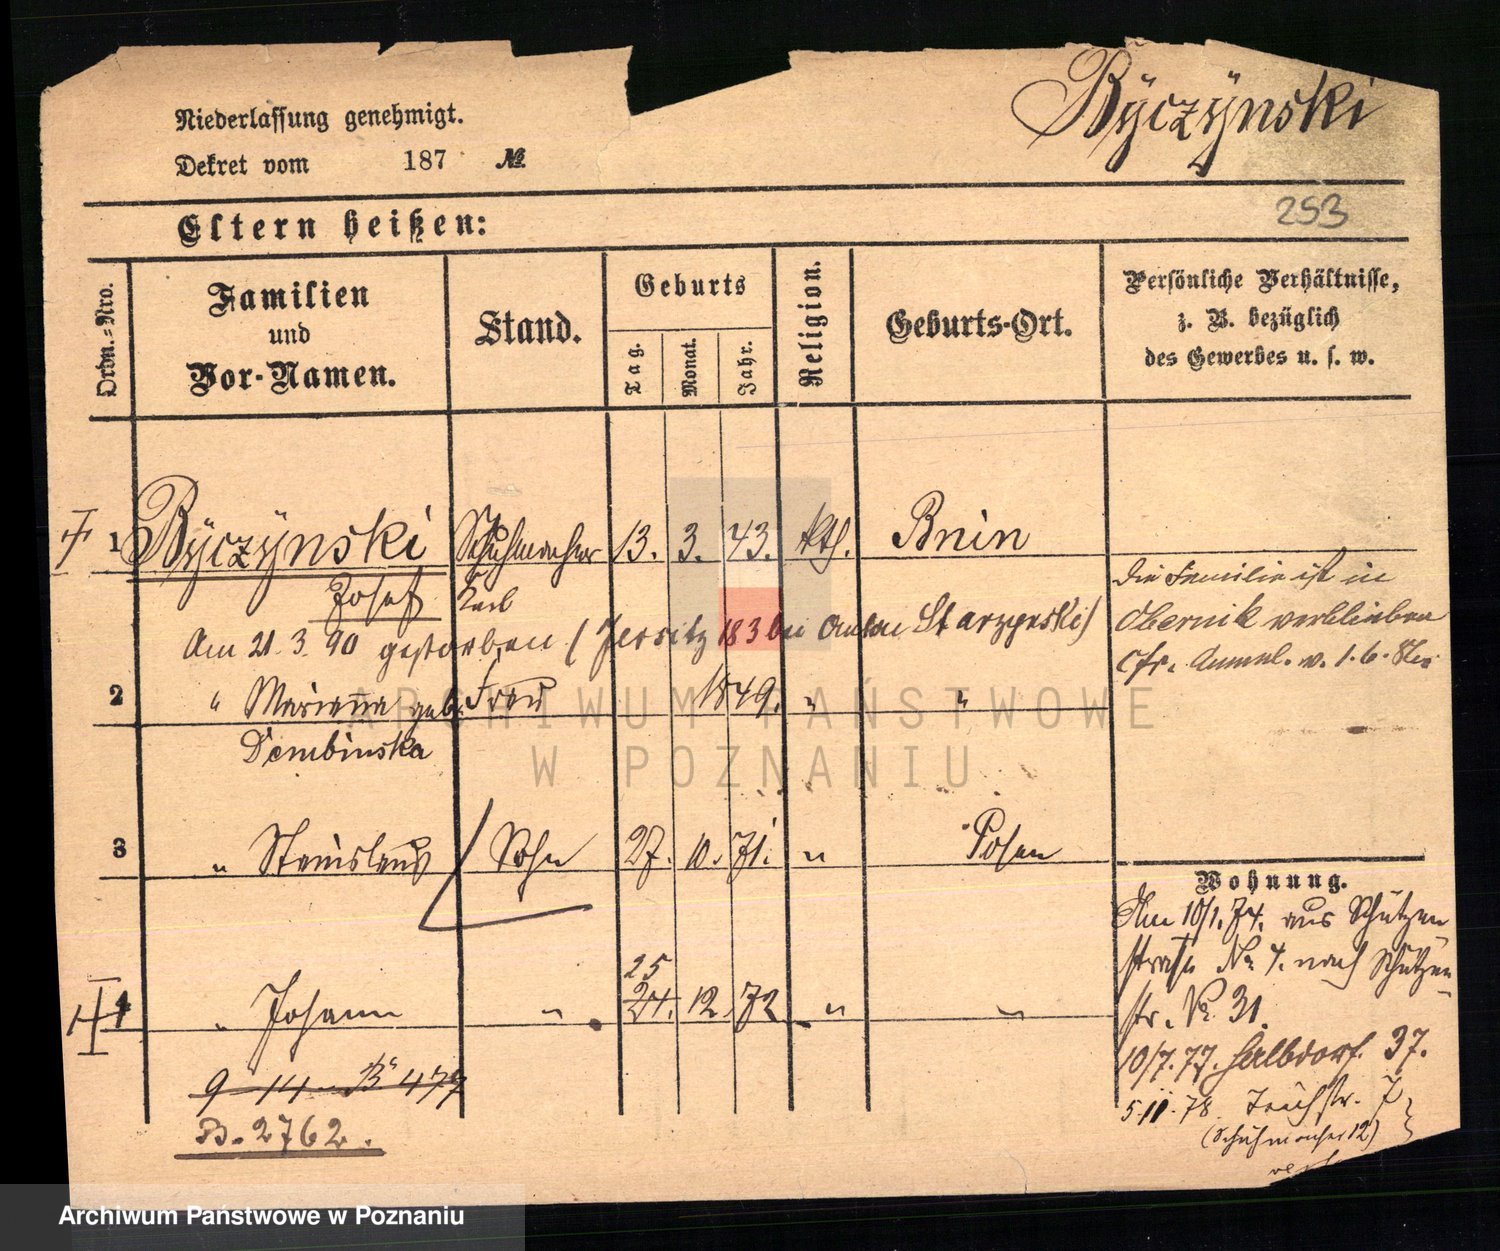 Niederlassung genehmigt.
Dekret vom 187 №
Bÿczÿnski
253
Eltern heißen:
Ordn.-Nro.
Familien
und
Vor-Namen.
Stand.
Geburts
Tag.
Monat.
Jahr.
Religion.
Geburts-Ort.
Persönliche Verhältnisse,
z. B. bezüglich
des Gewerbes u. s. w.
1 Bÿczÿnski Schuhmacher 13. 3. 43. kth. Bnin
Josef
Am 21.3.90 gestorben (Jersitz 183 bei Anton Starzynski)
Die Familie ist in
Obernik verblieben
cfr. v. 1.6.
2 " Mariena geb. Frau 1849. " "
Dembinska
3 " Stanislaus Sohn 27. 10. 71. " Posen
25
4 " Johann " 24. 12 72 " "
9 14 B 477
B. 2762.
Wohnung.
Am 10/1. 74. aus Schützen
straße No 4. nach Schützen
str. No 31.
10/7. 77. Halbdorf. 37.
5.11.78. Teichstr. 7
(Schuhmacher 12)
ARCHIWUM PAŃSTWOWE
W POZNANIU
Archiwum Państwowe w Poznaniu